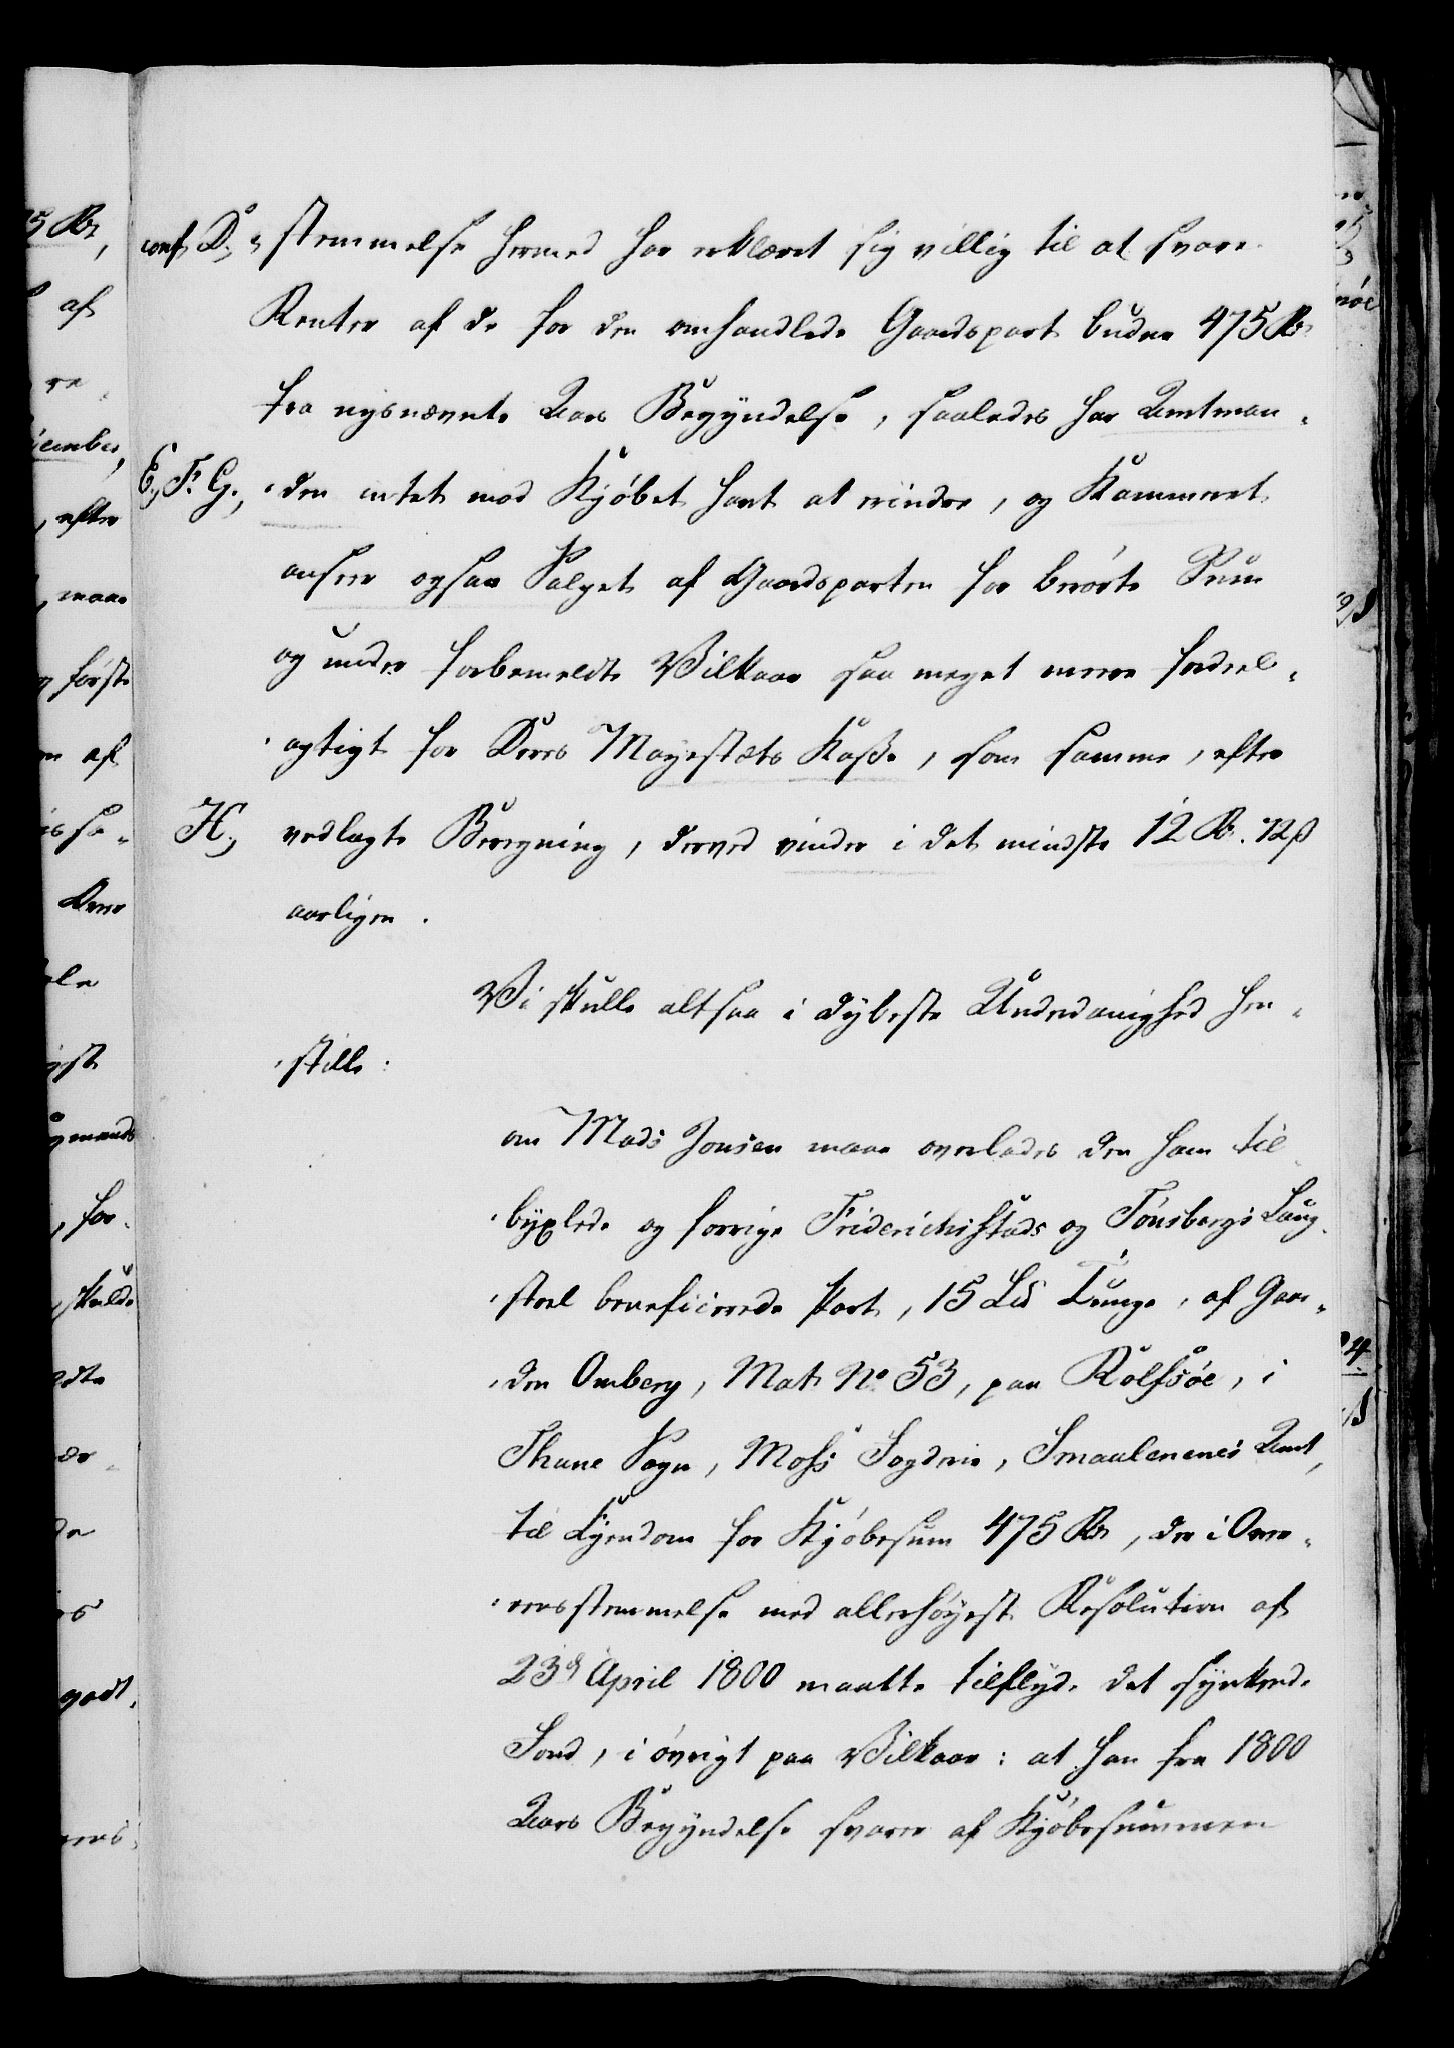 conf. D., stemmelse hermed har erklæret sig villig til at svare
Renter af de for den omhandlede Gaardspart budne 475 Rd
fra nysnævnte Aars Begyndelse, saaledes har Amtman-
E., F. G., den intet mod Kjöbet havt at erindre, og Kammeret
anseer ogsaa Salget af Gaardsparten for berörte Sum
og under forbemeldte Vilkaar saa meget meere fordeel-
agtigt for Deres Mayestæts Kasse, som samme, efter
H., vedlagte Beregning, derved vinder i det mindste 12 Rd. 72 ß
aarligen.
Vi skulle altsaa i dybeste Underdanighed hen-
stille:
om Mads Jonsen maae overlades den ham til-
byxlede og forrige Friderichsstads og Tönsbergs Laug-
stoel beneficerede Part, 15 Lid Tunge, af Gaar-
den Omberg, Mat. No. 53, paa Rolfsöe, i
Thune Sogn, Moss Fogderie, Smaalenenes Amt,
til Eyendom for Kjöbesum 475 Rd, der i Over-
eensstemmelse med allerhöyest Resolution af
23d April 1800 maatte tilflyde det synkende
Fond, i övrigt paa Vilkaar: at han fra 1800
Aars Begyndelse svarer af Kjöbesummen
5 Rd,
af
cember,
efter
maae
förste
af
for-
skulde